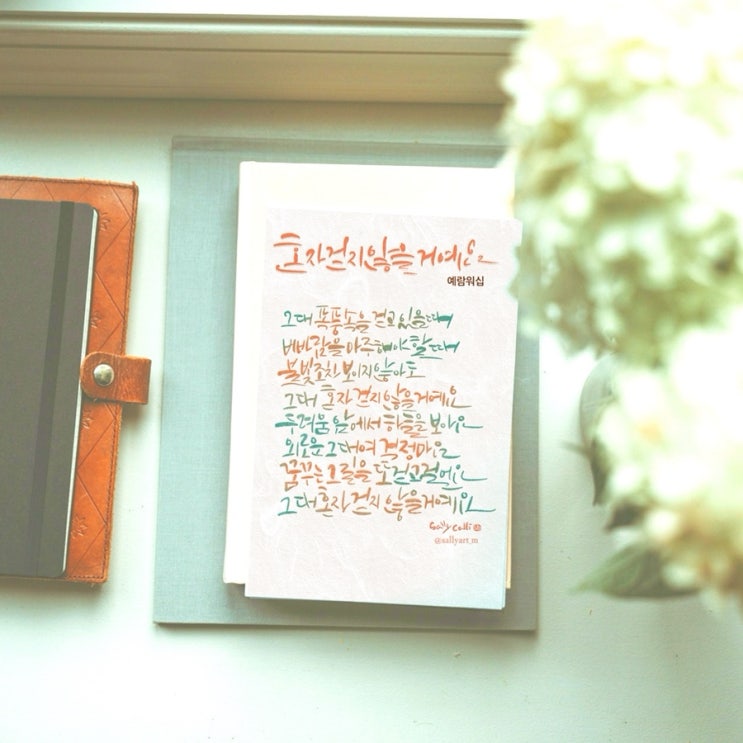 혼자 걷지 않을 거예요
예람워십
그대 폭풍 속을 걷고 있을 때
비바람을 마주해야 할 때
불빛조차 보이지 않아도
그대 혼자 걷지 않을 거예요
두려움 앞에서 하늘을 보아요
외로운 그대여 걱정마요
꿈꾸는 그 길을 또 걷고 걸어요
그대 혼자 걷지 않을 거예요
Sally Calli
@sallyart_m